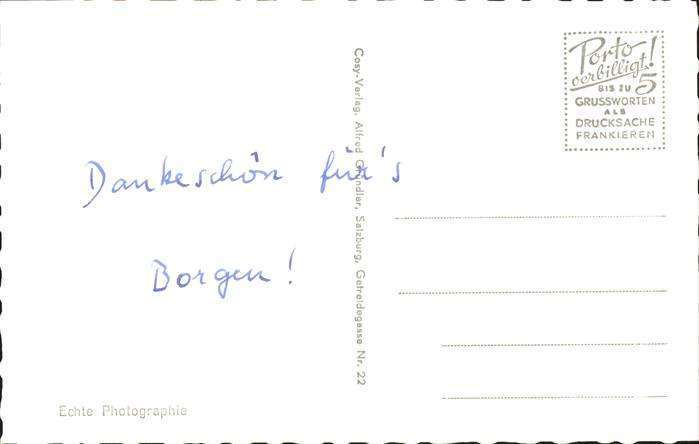 Dankeschön für's
Borgen!
Echte Photographie
Cosy-Verlag, Alfred Gründler, Salzburg, Getreidegasse Nr. 22
Porto
verbilligt!
BIS ZU 5
GRUSSWORTEN
ALS
DRUCKSACHE
FRANKIEREN